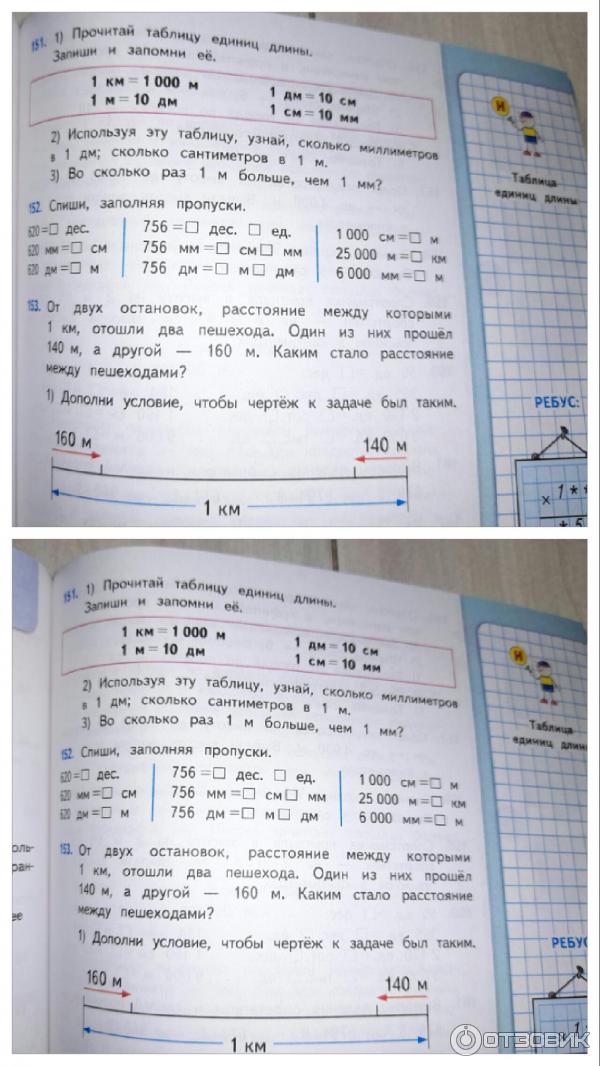 151. 1) Прочитай таблицу единиц длины.
Запиши и запомни её.
1 км = 1 000 м
1 м = 10 дм
1 дм = 10 см
1 см = 10 мм
2) Используя эту таблицу, узнай, сколько миллиметров
в 1 дм; сколько сантиметров в 1 м.
3) Во сколько раз 1 м больше, чем 1 мм?
И
Таблица
единиц длины
152. Спиши, заполняя пропуски.
620 = □ дес.
620 мм = □ см
620 дм = □ м
756 = □ дес. □ ед.
756 мм = □ см □ мм
756 дм = □ м □ дм
1 000 см = □ м
25 000 м = □ км
6 000 мм = □ м
153. От двух остановок, расстояние между которыми
1 км, отошли два пешехода. Один из них прошёл
140 м, а другой — 160 м. Каким стало расстояние
между пешеходами?
1) Дополни условие, чтобы чертёж к задаче был таким.
160 м
140 м
1 км
РЕБУС:
х 1 * *
* 5
151. 1) Прочитай таблицу единиц длины.
Запиши и запомни её.
1 км = 1 000 м
1 м = 10 дм
1 дм = 10 см
1 см = 10 мм
2) Используя эту таблицу, узнай, сколько миллиметров
в 1 дм; сколько сантиметров в 1 м.
3) Во сколько раз 1 м больше, чем 1 мм?
И
Таблица
единиц длины
152. Спиши, заполняя пропуски.
620 = □ дес.
620 мм = □ см
620 дм = □ м
756 = □ дес. □ ед.
756 мм = □ см □ мм
756 дм = □ м □ дм
1 000 см = □ м
25 000 м = □ км
6 000 мм = □ м
оль-
ран-
ее
153. От двух остановок, расстояние между которыми
1 км, отошли два пешехода. Один из них прошёл
140 м, а другой — 160 м. Каким стало расстояние
между пешеходами?
1) Дополни условие, чтобы чертёж к задаче был таким.
160 м
140 м
1 км
РЕБУС
ОТЗОВИК